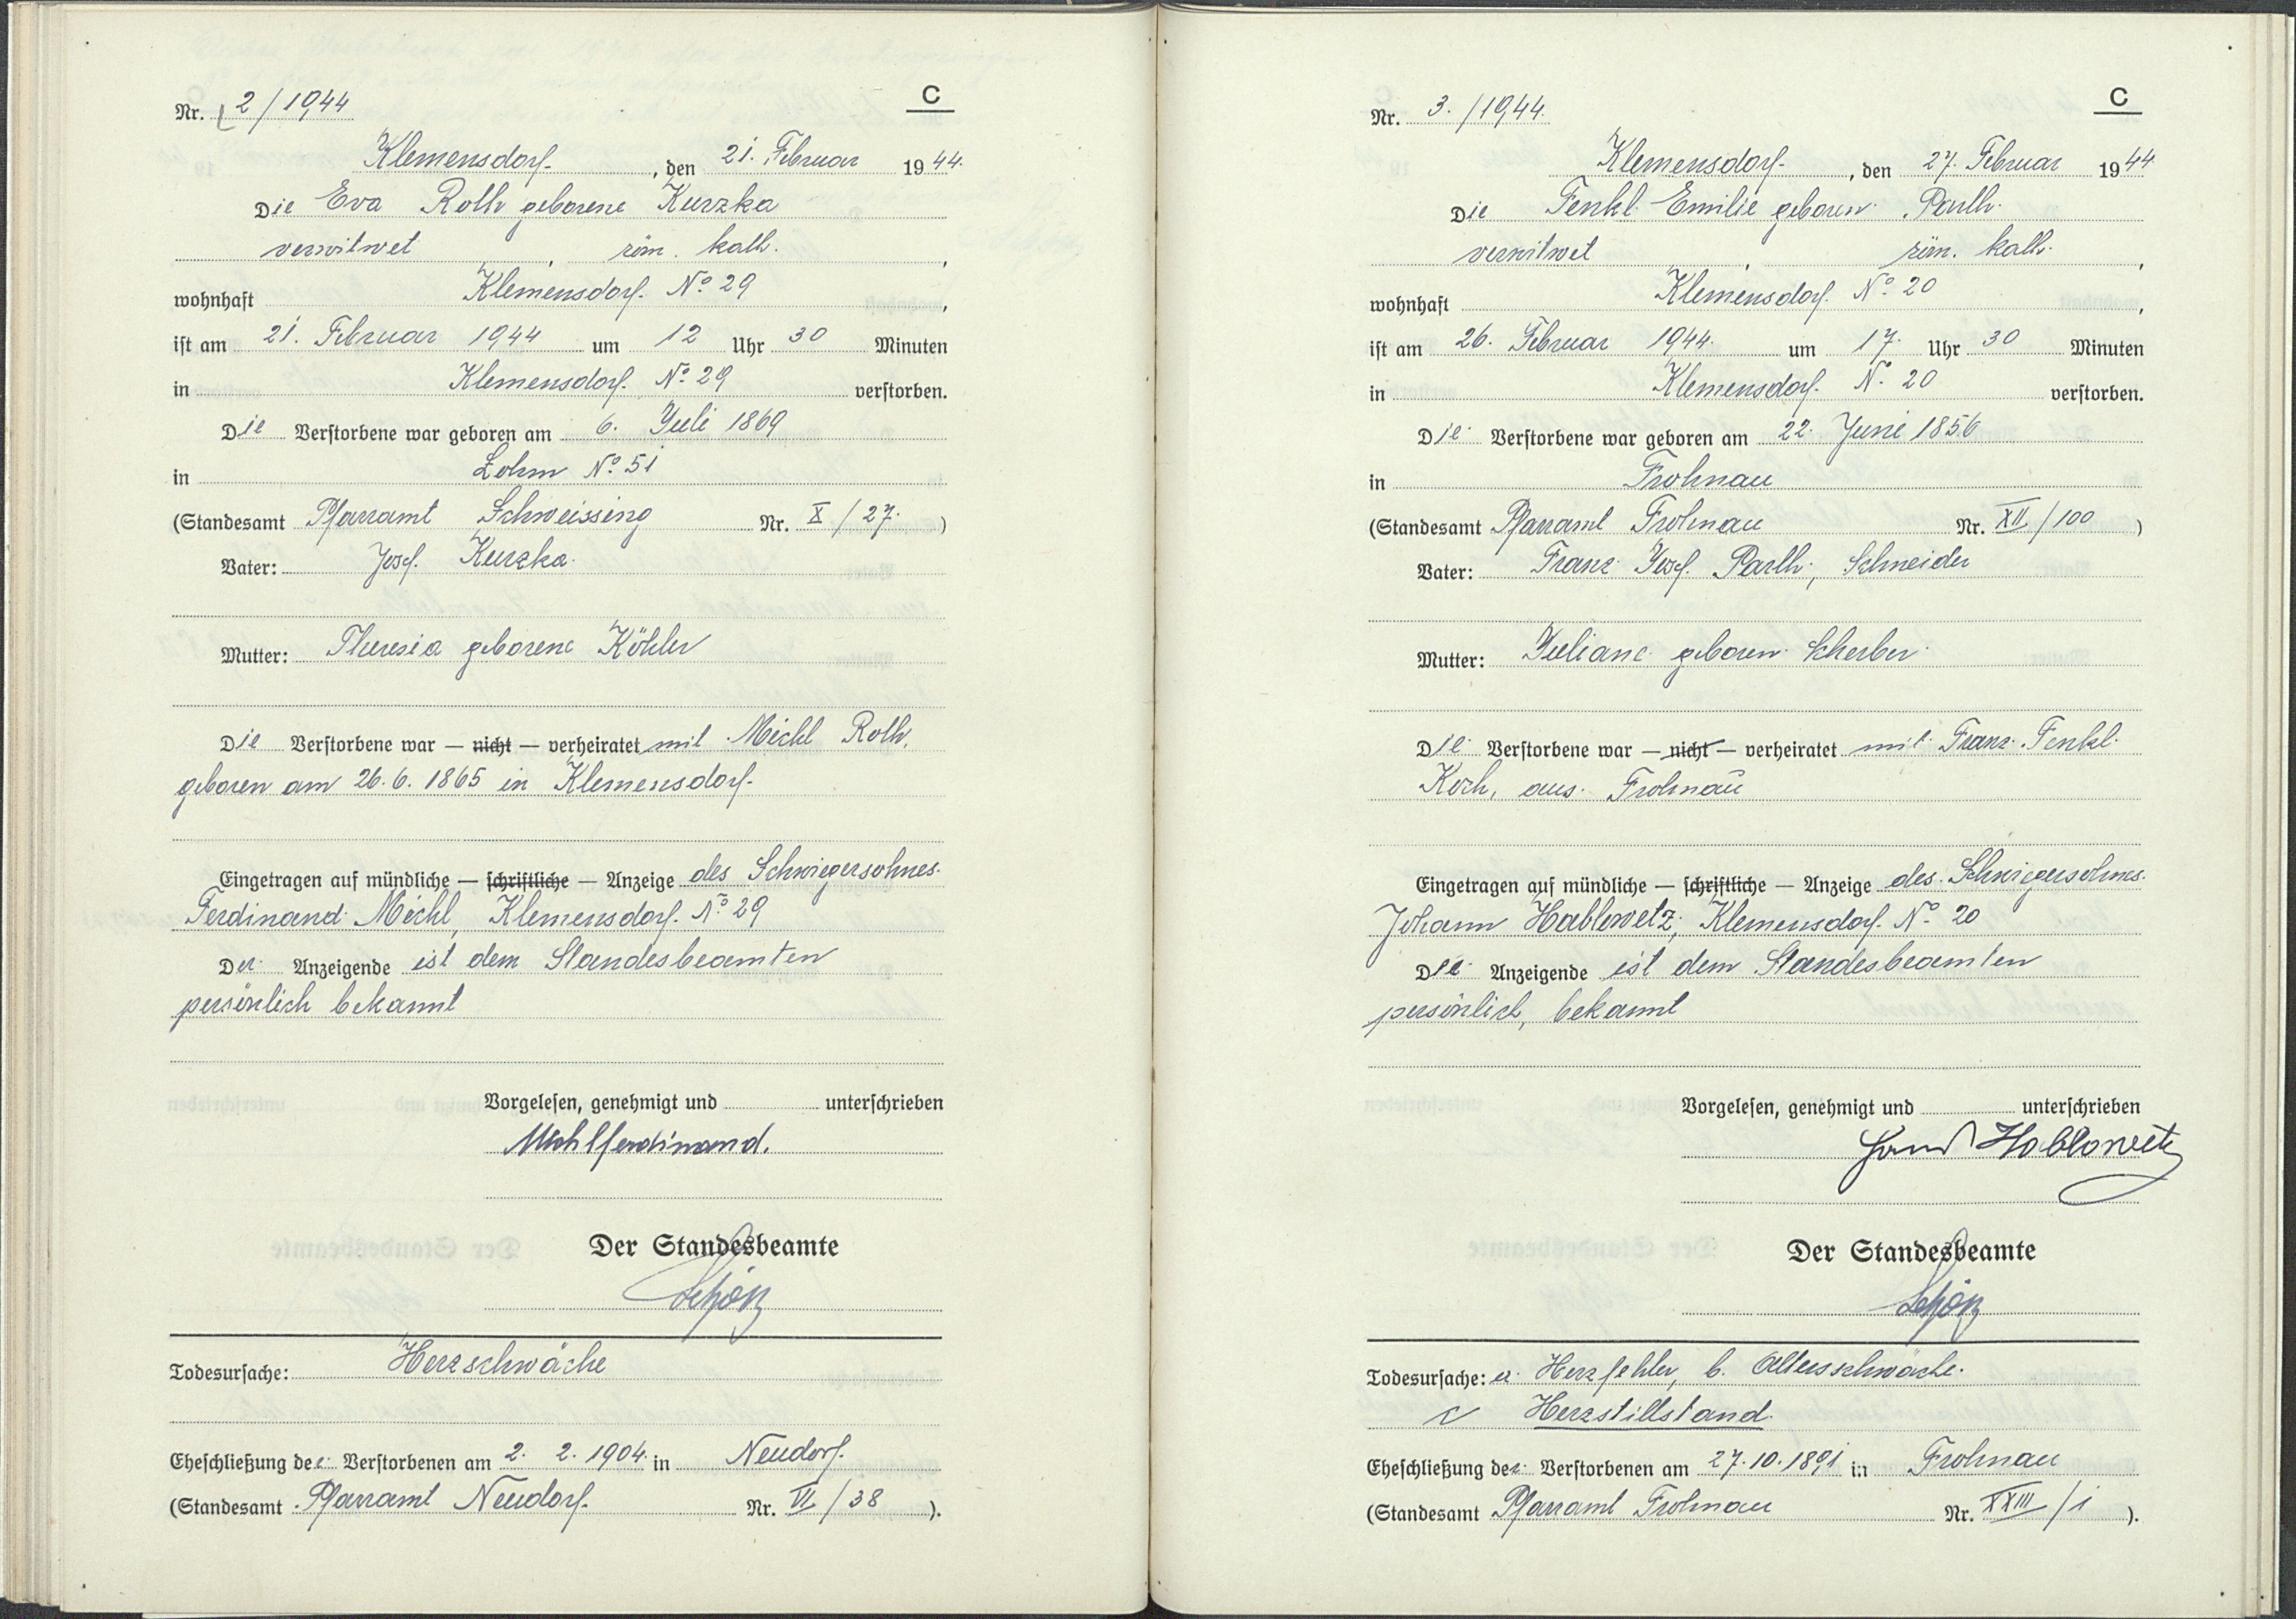 C
Nr. 2/1944
Klemensdorf, den 21. Februar 1944.
Die Eva Roth geborene Kurzka
verwitwet, röm. kath.,
wohnhaft Klemensdorf. No 29,
ist am 21. Februar 1944 um 12 Uhr 30 Minuten
in Klemensdorf. No 29 verstorben.
Die Verstorbene war geboren am 6. Juli 1869
in Lohm No 51
(Standesamt Pfarramt Schweissing Nr. X/27.)
Vater: Josef. Kurzka.
Mutter: Theresia geborene Köhler
Die Verstorbene war — nicht — verheiratet mit Michl Roth,
geboren am 26.6.1865 in Klemensdorf.
Eingetragen auf mündliche — schriftliche — Anzeige des Schwiegersohnes.
Ferdinand Michl, Klemensdorf. No 29
Der Anzeigende ist dem Standesbeamten
persönlich bekannt
Vorgelesen, genehmigt und unterschrieben
Michl ferdinand.
Der Standesbeamte
Todesursache: Herzschwäche
Eheschließung der Verstorbenen am 2. 2. 1904. in Neudorf.
(Standesamt Pfarramt Neudorf. Nr. VI/38).
C
Nr. 3./1944.
Klemensdorf, den 27. Februar 1944
Die Fenkl Emilie geboren. Parth.
verwitwet, röm. kath.,
wohnhaft Klemensdorf. No 20,
ist am 26. Februar 1944. um 17. Uhr 30 Minuten
in Klemensdorf. N. 20 verstorben.
Die Verstorbene war geboren am 22. Juni 1856
in Frohnau
(Standesamt Pfarramt Frohnau Nr. XII/100)
Vater: Franz Josef. Parth., Schneider
Mutter: Juliane geboren. Scherber.
Die Verstorbene war — nicht — verheiratet mit Franz Fenkl.
Koch, aus Frohnau
Eingetragen auf mündliche — schriftliche — Anzeige des Schwiegersohnes.
Johann Hablowetz, Klemensdorf. No 20
Die Anzeigende ist dem Standesbeamten
persönlich, bekannt
Vorgelesen, genehmigt und unterschrieben
Hablowetz
Der Standesbeamte
Todesursache: a. Herzfehler, b. Altersschwäche.
c Herzstillstand.
Eheschließung der Verstorbenen am 27.10.1891 in Frohnau
(Standesamt Pfarramt Frohnau Nr. XXIII/1).